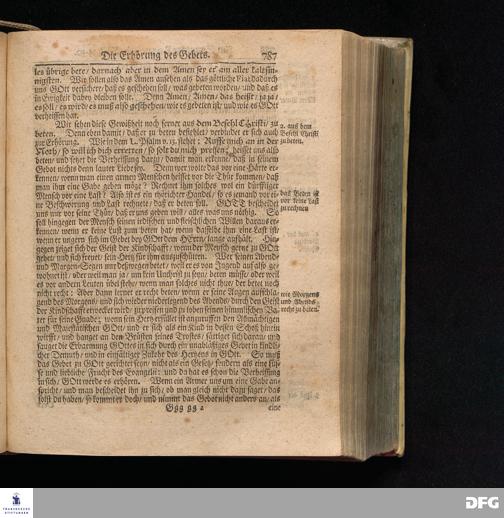 Die Erhörung des Gebets. 787
les übrige bete/ darnach aber in dem Amen sey er am aller kaltsin-
nigsten. Wir sollen also das Amen ansehen als das göttliche Fiat dadurch
uns GOtt versichert/ daß es geschehen soll/ was gebeten worden/ und daß es
in Ewigkeit dabey bleiben soll. Denn Amen/ Amen/ das heist/ ja ja/
es soll/ es wird/ es muß also geschehen/ wie es gebeten ist/ und wie es GOtt
verheissen hat.
Wir sehen diese Gewißheit noch ferner aus dem Befehl Christi/ zu
beten. Denn eben damit/ daß er zu beten befiehlet/ verbindet er sich auch
zur Erhörung. Wie in dem L. Psalm v. 15. stehet: Ruffe mich an in der
Noth/ so will ich dich erretten/ so solt du mich preisen; heisset uns also
beten/ und setzet die Verheissung darzu/ damit man erkenne/ daß in seinem
Gebot nichts denn lauter Liebe sey. Denn wer wolte das vor eine Härte er-
kennen/ wenn man einen armen Menschen heisset vor die Thür kommen/ daß
man ihm eine Gabe geben möge? Rechnet ihm solches wol ein dürfftiger
Mensch vor eine Last? Also ist es ein thörichter Handel/ so es jemand vor ei-
ne Beschwerung und Last rechnete/ daß er beten soll. GOTT bescheidet
uns nur vor seine Thür/ daß er uns geben will/ alles was uns nöthig. So
soll hingegen der Mensch seinen irdischen und fleischlichen Willen daraus er-
kennen/ wenn er keine Lust zum beten hat/ wenn dasselbe ihm eine Last ist/
wenn er ungern sich im Gebet bey GOtt dem HErrn lange aufhält. Hin-
gegen zeiget sich der Geist der Kindschafft/ wenn der Mensch gerne zu GOtt
gehet/ und sich freuet/ sein Hertz für ihm auszuschütten. Wer seinen Abend-
und Morgen-Segen nur deßwegen betet/ weil er es von Jugend auf also ge-
wohnet ist/ oder weil man ja/ um kein Unchrist zu seyn/ beten müsse/ oder weil
es vor andern Leuten übel stehe/ wenn man solches nicht thue/ der betet noch
nicht recht: Aber dann lernet er recht beten/ wenn er seine Augen aufschla-
gend des Morgens/ und sich wieder niederlegend des Abends/ durch den Geist
der Kindschafft erwecket wird/ zu preisen und zu loben seinen himmlischen Va-
ter für seine Gnade; wenn sein Hertz erfüllet ist anzuruffen den Allmächtigen
und Majestätischen GOtt/ und er sich als ein Kind in dessen Schoß hinein
wirfft/ und hanget an den Brüsten seines Trostes/ sättiget sich daran/ und
sauget die Erbarmung GOttes in sich durch ein unabläßiges Gebet in kindli-
cher Demuth/ und in einfältiger Liebe des Hertzens in GOtt. So muß
das Gebet zu GOtt gerichtet seyn/ nicht als ein Gesetz/ sondern als eine süs-
se und liebliche Frucht des Evangelii: und da hat es schon die Verheissung
in sich/ GOtt werde es erhören. Wenn ein Armer uns um eine Gabe an-
spricht/ und man bescheidet ihn zu sich/ ob man gleich nicht dazu saget/ das
solst du haben/ so kommt er doch/ und nimmt das Gebot nicht anders an/ als
eine
2. aus dem
Befehl Christi
zu beten.
daß Beten ist
vor keine Last
zu rechnen
wie Morgens
und Abends
recht zu beten.
FRANCKESCHE
STIFTUNGEN
DFG